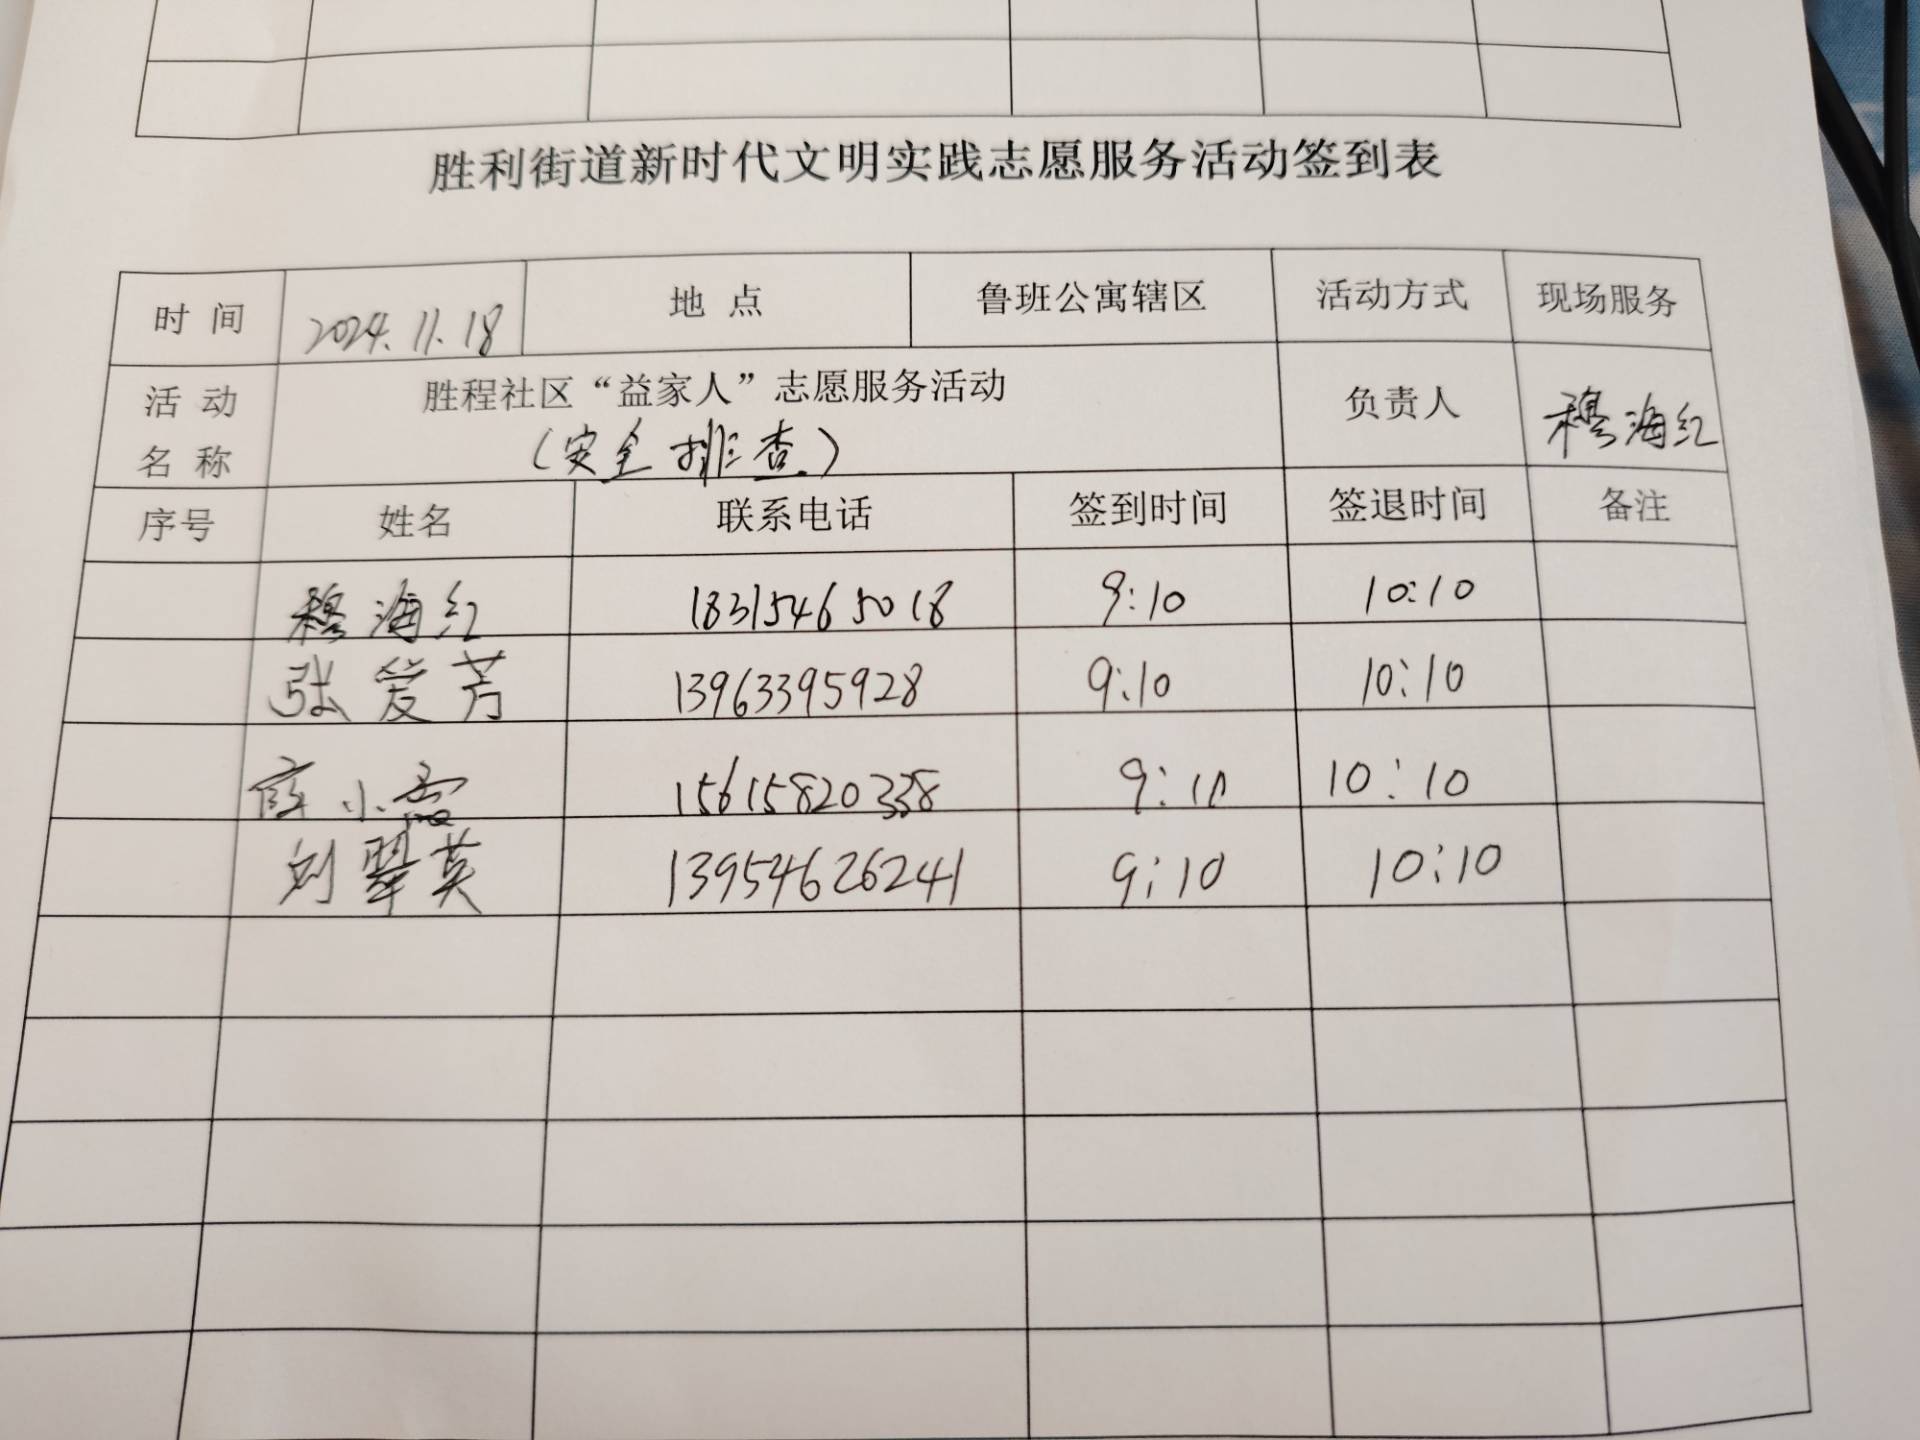 胜利街道新时代文明实践志愿服务活动签到表
时 间 2024.11.18 地 点 鲁班公寓辖区 活动方式 现场服务
活 动 名 称 胜程社区“益家人”志愿服务活动 负责人 穆海红
(安全排查)
序号 姓名 联系电话 签到时间 签退时间 备注
穆海红 18315465018 9:10 10:10
张爱芳 13963395928 9:10 10:10
小霞 15615820338 9:10 10:10
刘翠英 13954626241 9:10 10:10